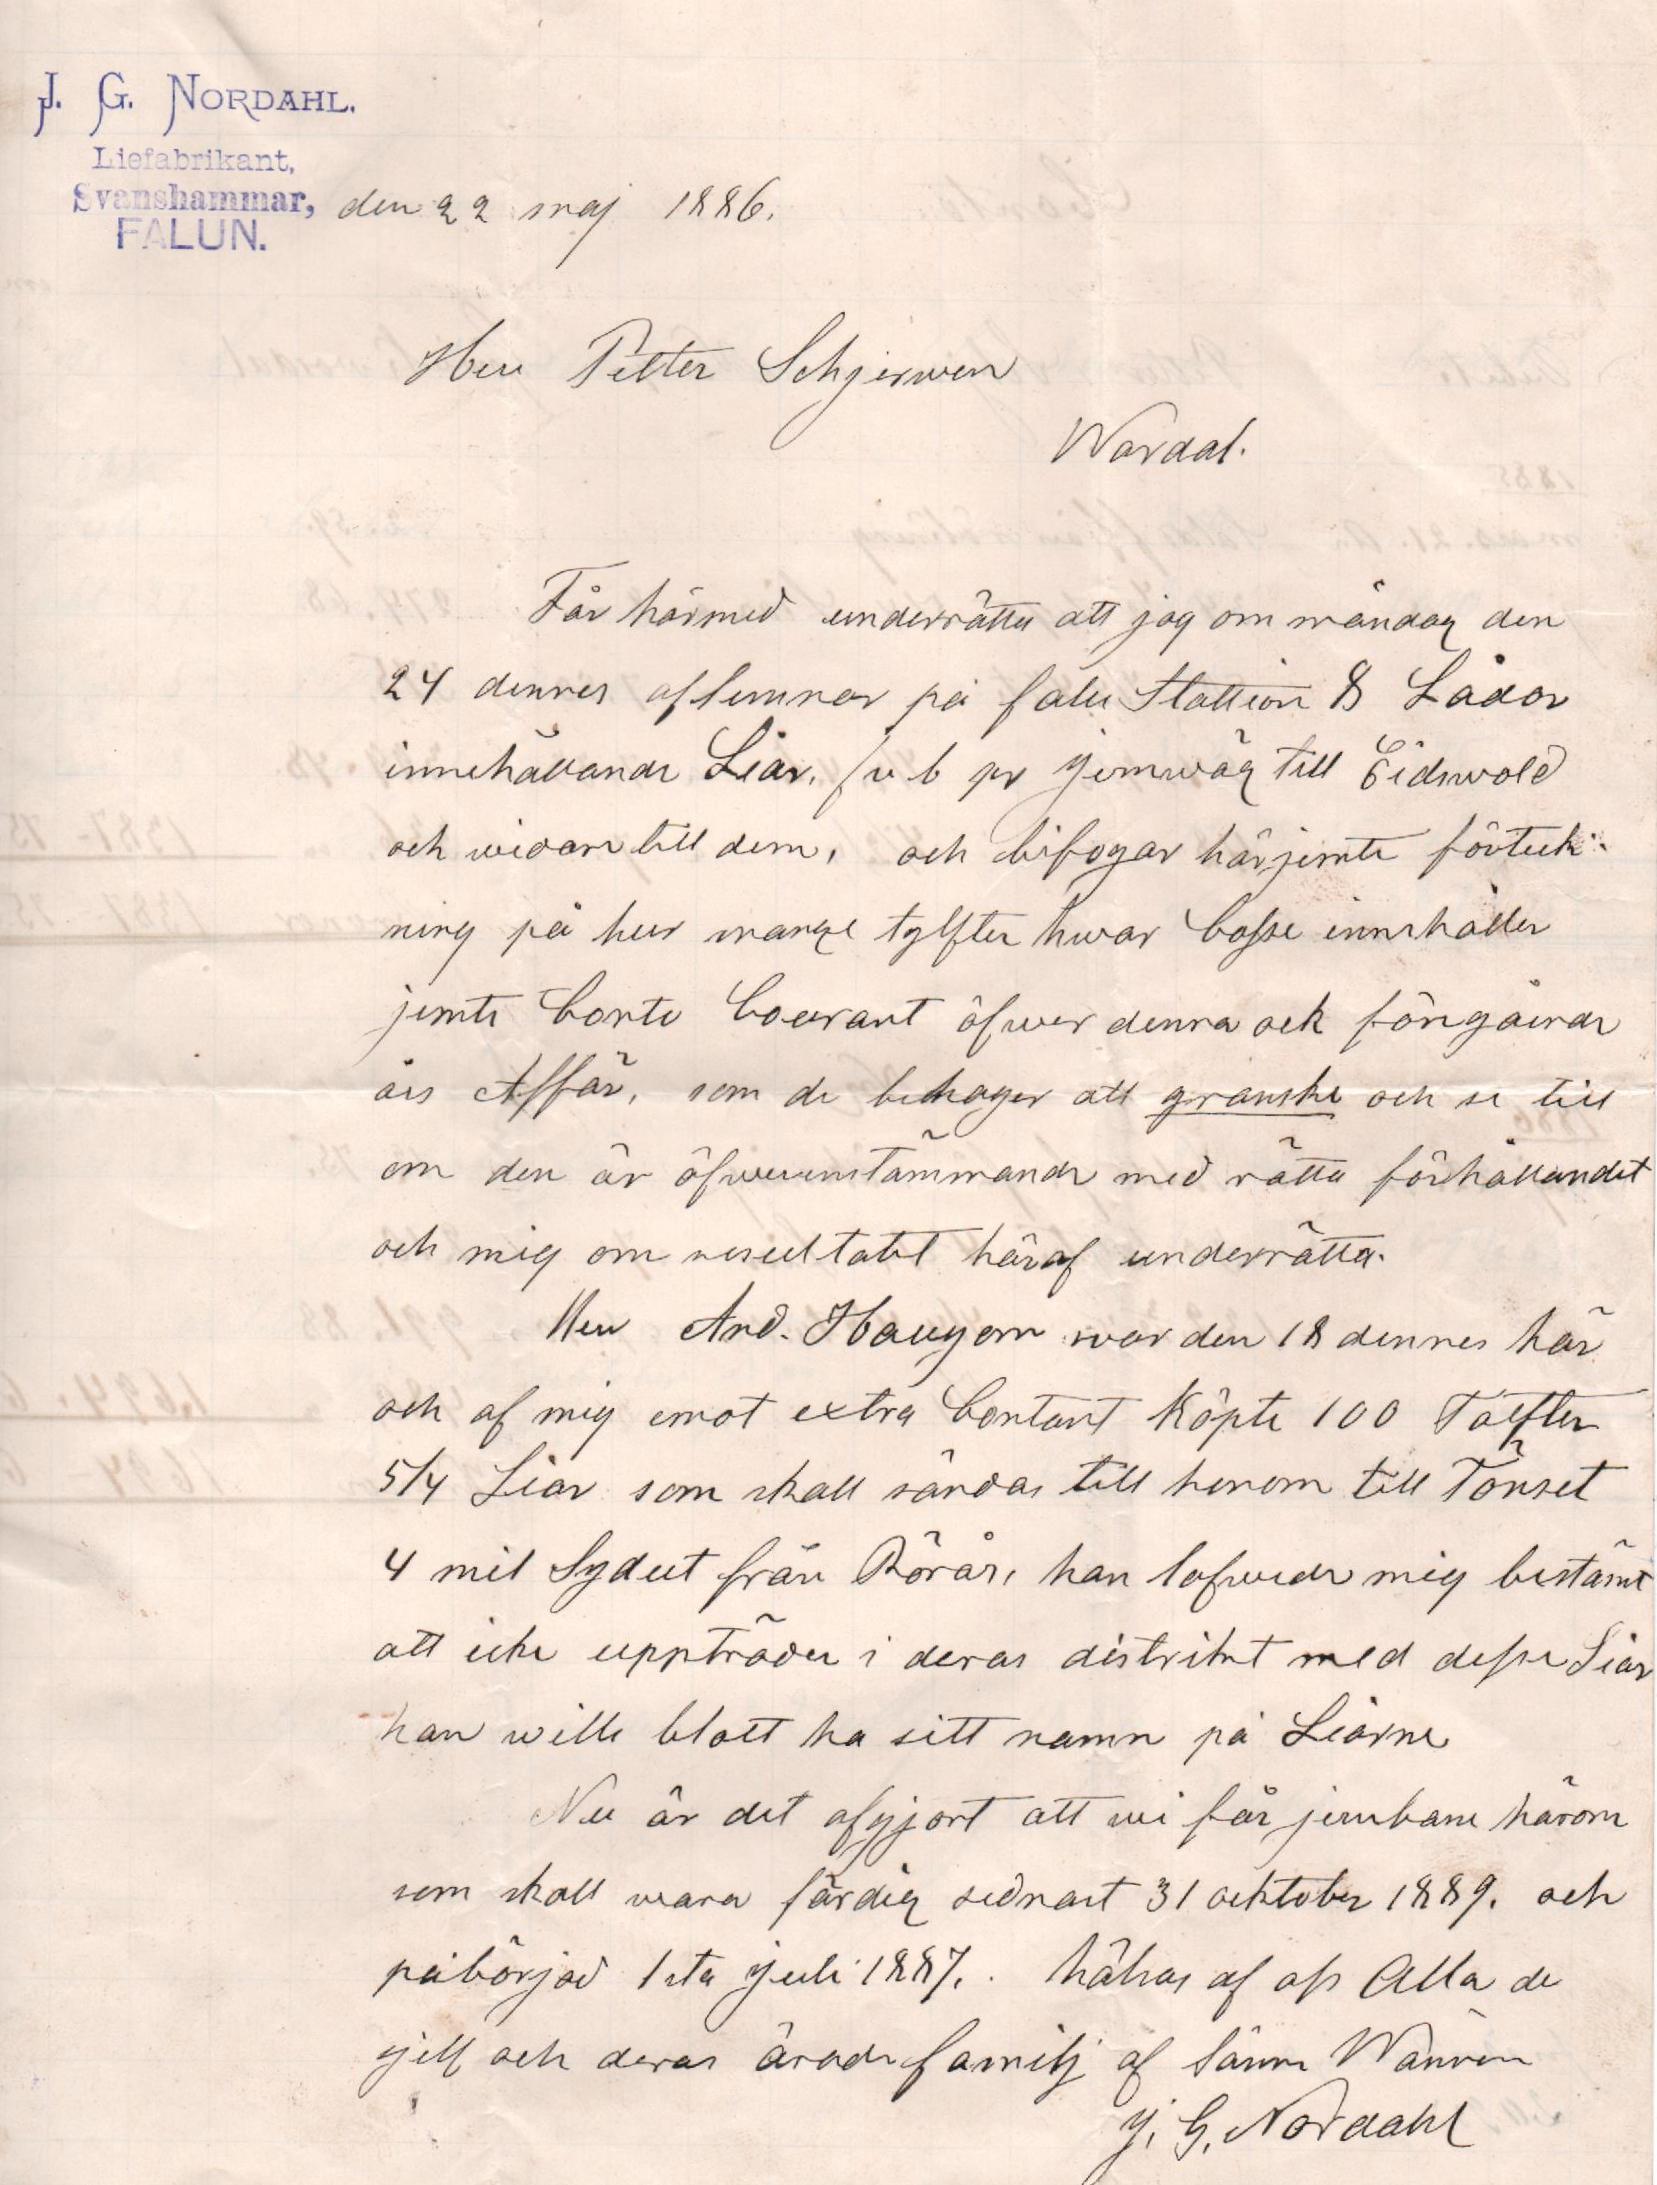 J. G. NORDAHL.
Liefabrikant,
Svanshammar, den 22 maj 1886.
FALUN.
Herr Petter Schjerwen
Wardal.
Får härmed underrätta att jag om måndag den
24 dennes aflemnar på falu Stattion 8 Lådor
innehållande Liar, pr jernwäg till Eidswold
och widare till dem, och bifogar härjemte förteck-
ning på hur mange tylfter hwar Casse innehåller
jemte Conto Courant öfwer denna och föregående
års Affär, som de behager att granske och se till
om den är öfwerenstämmande med rätta förhållandet
och mig om resultatet häraf underrätta.
Herr And. Haugom war den 18 dennes här
och af mig emot extra Contant Köpte 100 Tolfter
5/4 Liar som skall sändas till honom till Tönset
4 mil Sydut från Rörås, han lofwede mig bestämt
att icke uppträda i deras distrikt med desse Liar
han wille blott ha sitt namn på Liarne
Nu är det afgjort att wi får jernbane härom
som skall wara färdig sednast 31 ocktober 1889. och
påbörjad 1sta Juli 1887. hälsas af oss Alla de
sjelf och deras ärade familj af Sanne Wännen
J. G. Nordahl